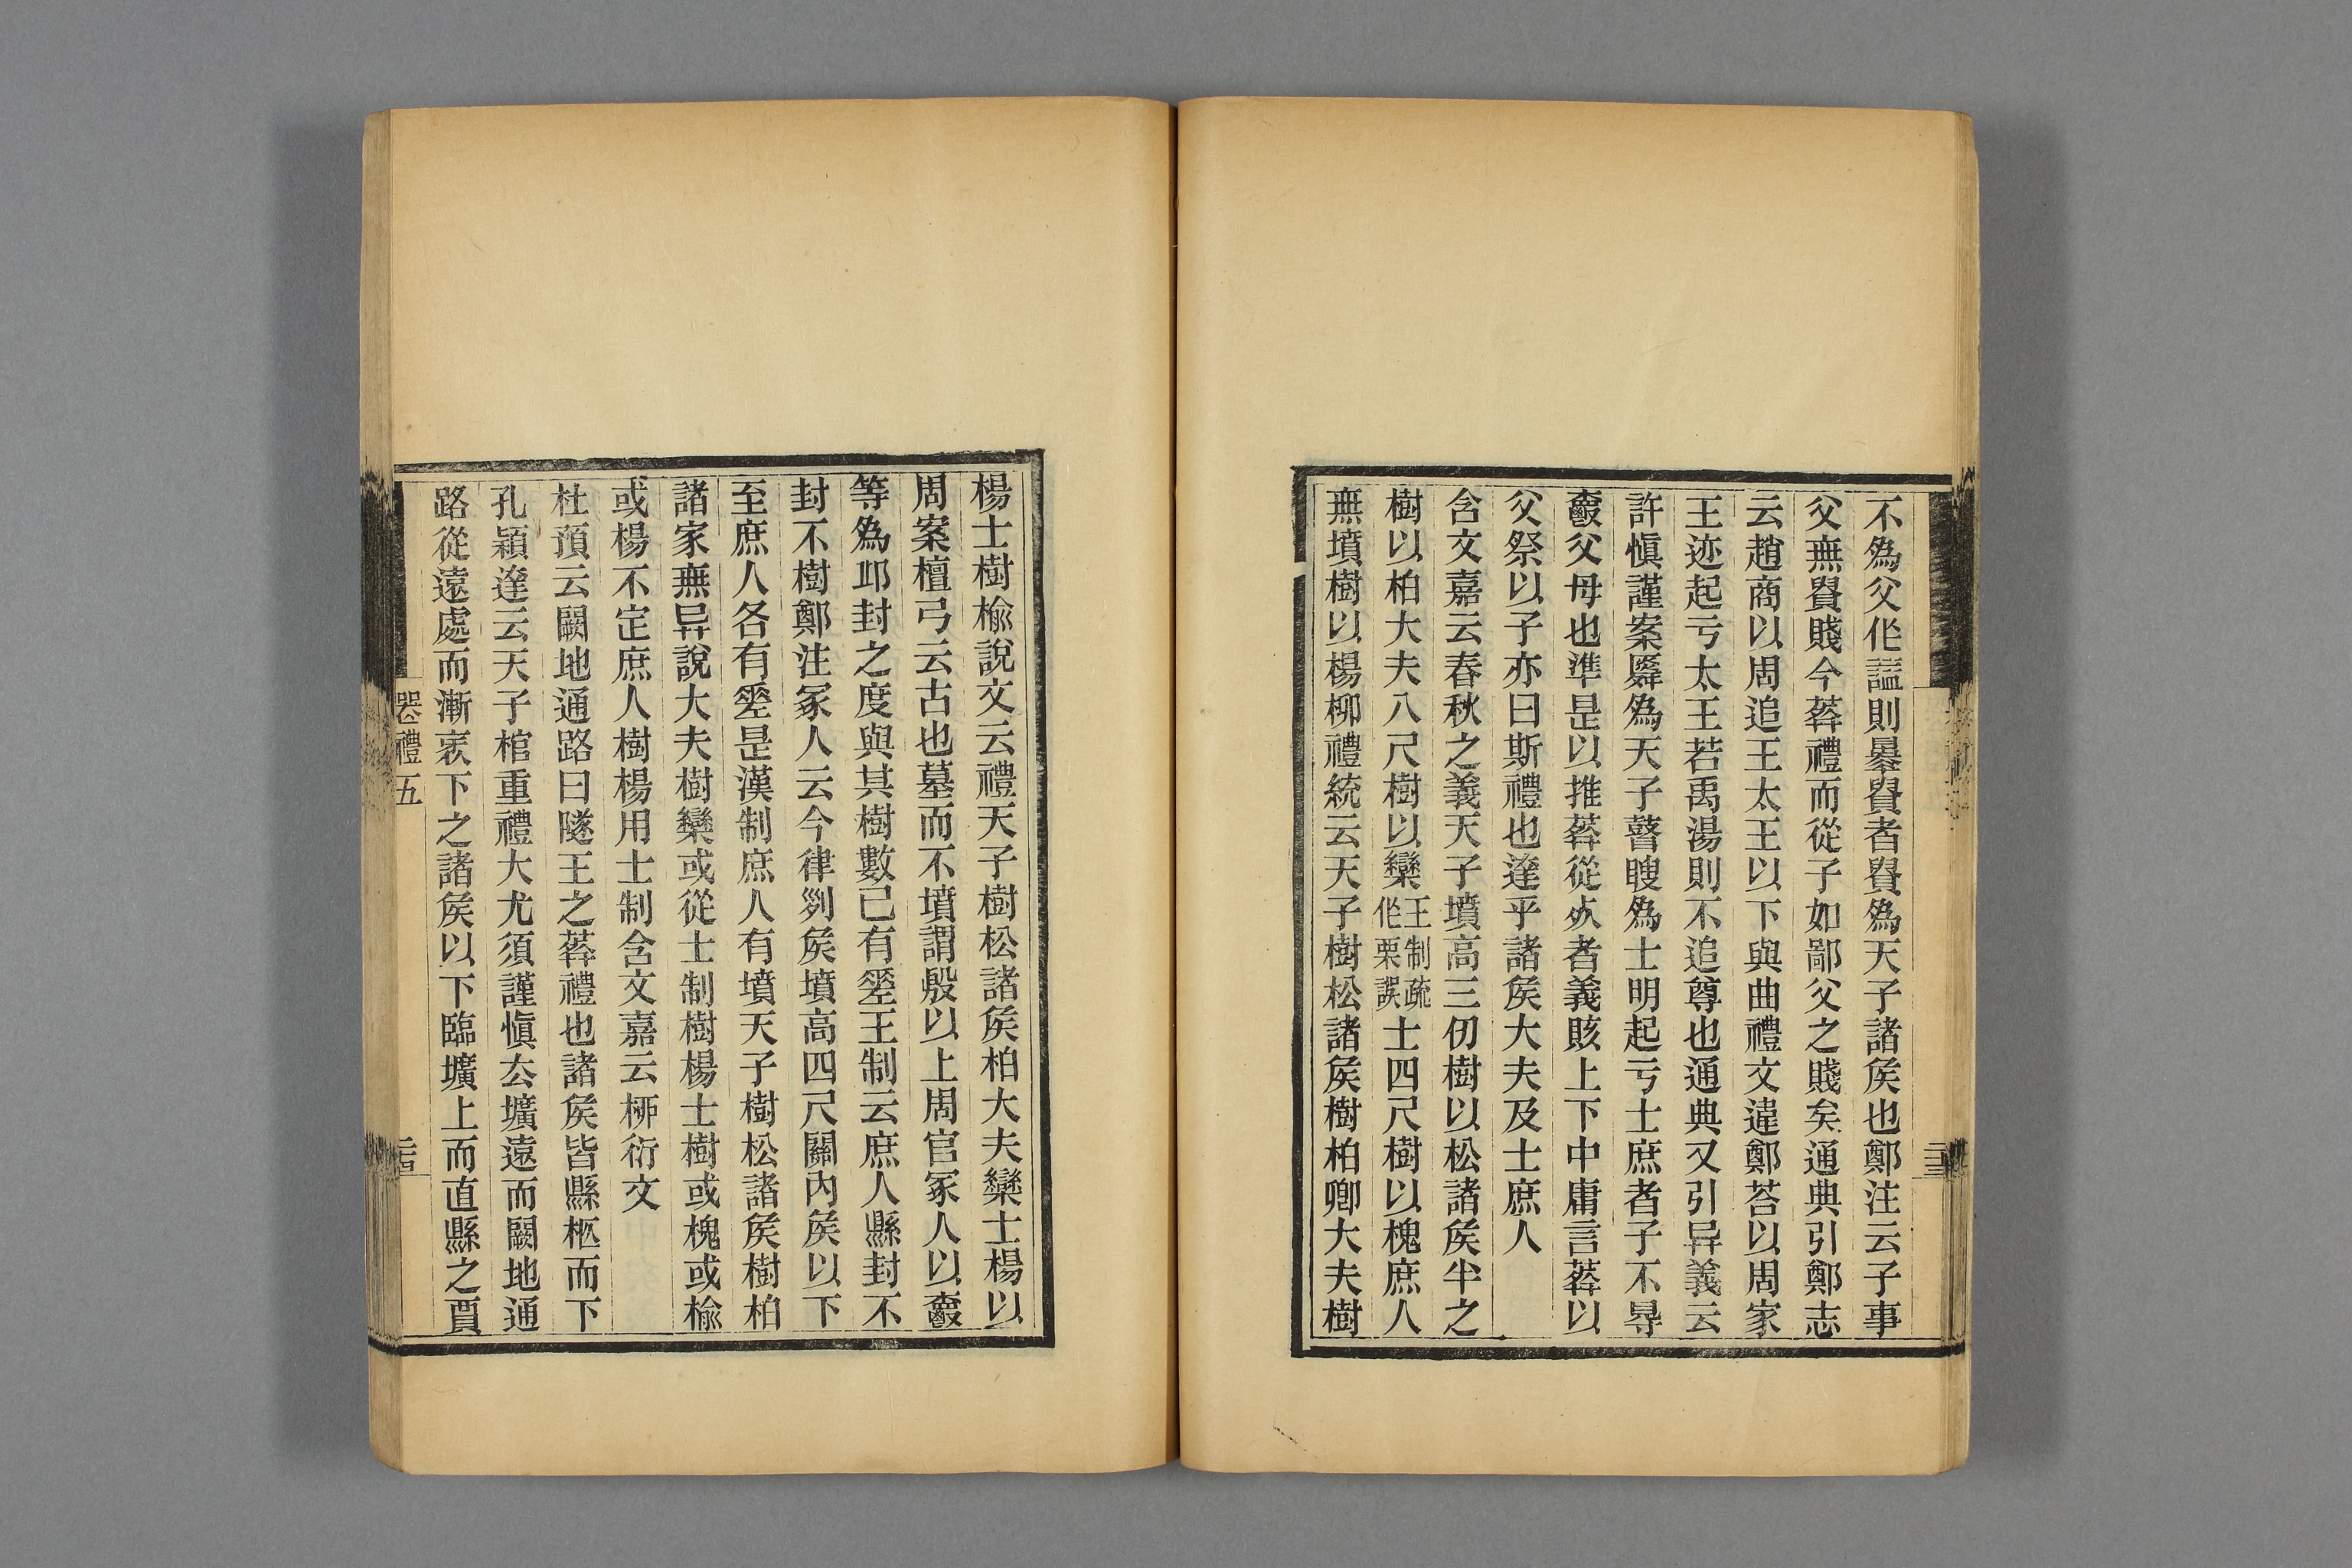 不爲父作諡則㬥貴者貴爲天子諸矦也鄭注云子事
父無貴賤今葬禮而從子如鄙父之賤矣通典引鄭志
云趙商以周追王太王以下與曲禮文違鄭荅以周家
王迹起亏太王若禹湯則不追尊也通典又引异義云
許愼謹案舜爲天子瞽瞍爲士明起亏士庶者子不㝵
爵父母也準是以推葬從死者義賅上下中庸言葬以
父祭以子亦曰斯禮也達乎諸矦大夫及士庶人
含文嘉云春秋之義天子墳高三仞樹以松諸矦半之
樹以柏大夫八尺樹以欒王制疏作栗誤士四尺樹以槐庶人
無墳樹以楊柳禮統云天子樹松諸矦樹柏卿大夫樹
楊士樹榆說文云禮天子樹松諸矦柏大夫欒士楊以
周案檀弓云古也墓而不墳謂殷以上周官冢人以爵
等爲邱封之度與其樹數已有𡍮王制云庶人縣封不
封不樹鄭注冢人云今律列矦墳高四尺關內矦以下
至庶人各有𡍮是漢制庶人有墳天子樹松諸矦樹柏
諸家無异說大夫樹欒或從士制樹楊士樹或槐或榆
或楊不定庶人樹楊用士制含文嘉云柳衍文
杜預云闕地通路曰隧王之葬禮也諸矦皆縣柩而下
孔穎達云天子棺重禮大尤須謹愼去壙遠而闕地通
路從遠處而漸衺下之諸矦以下臨壙上而直縣之賈
禮五